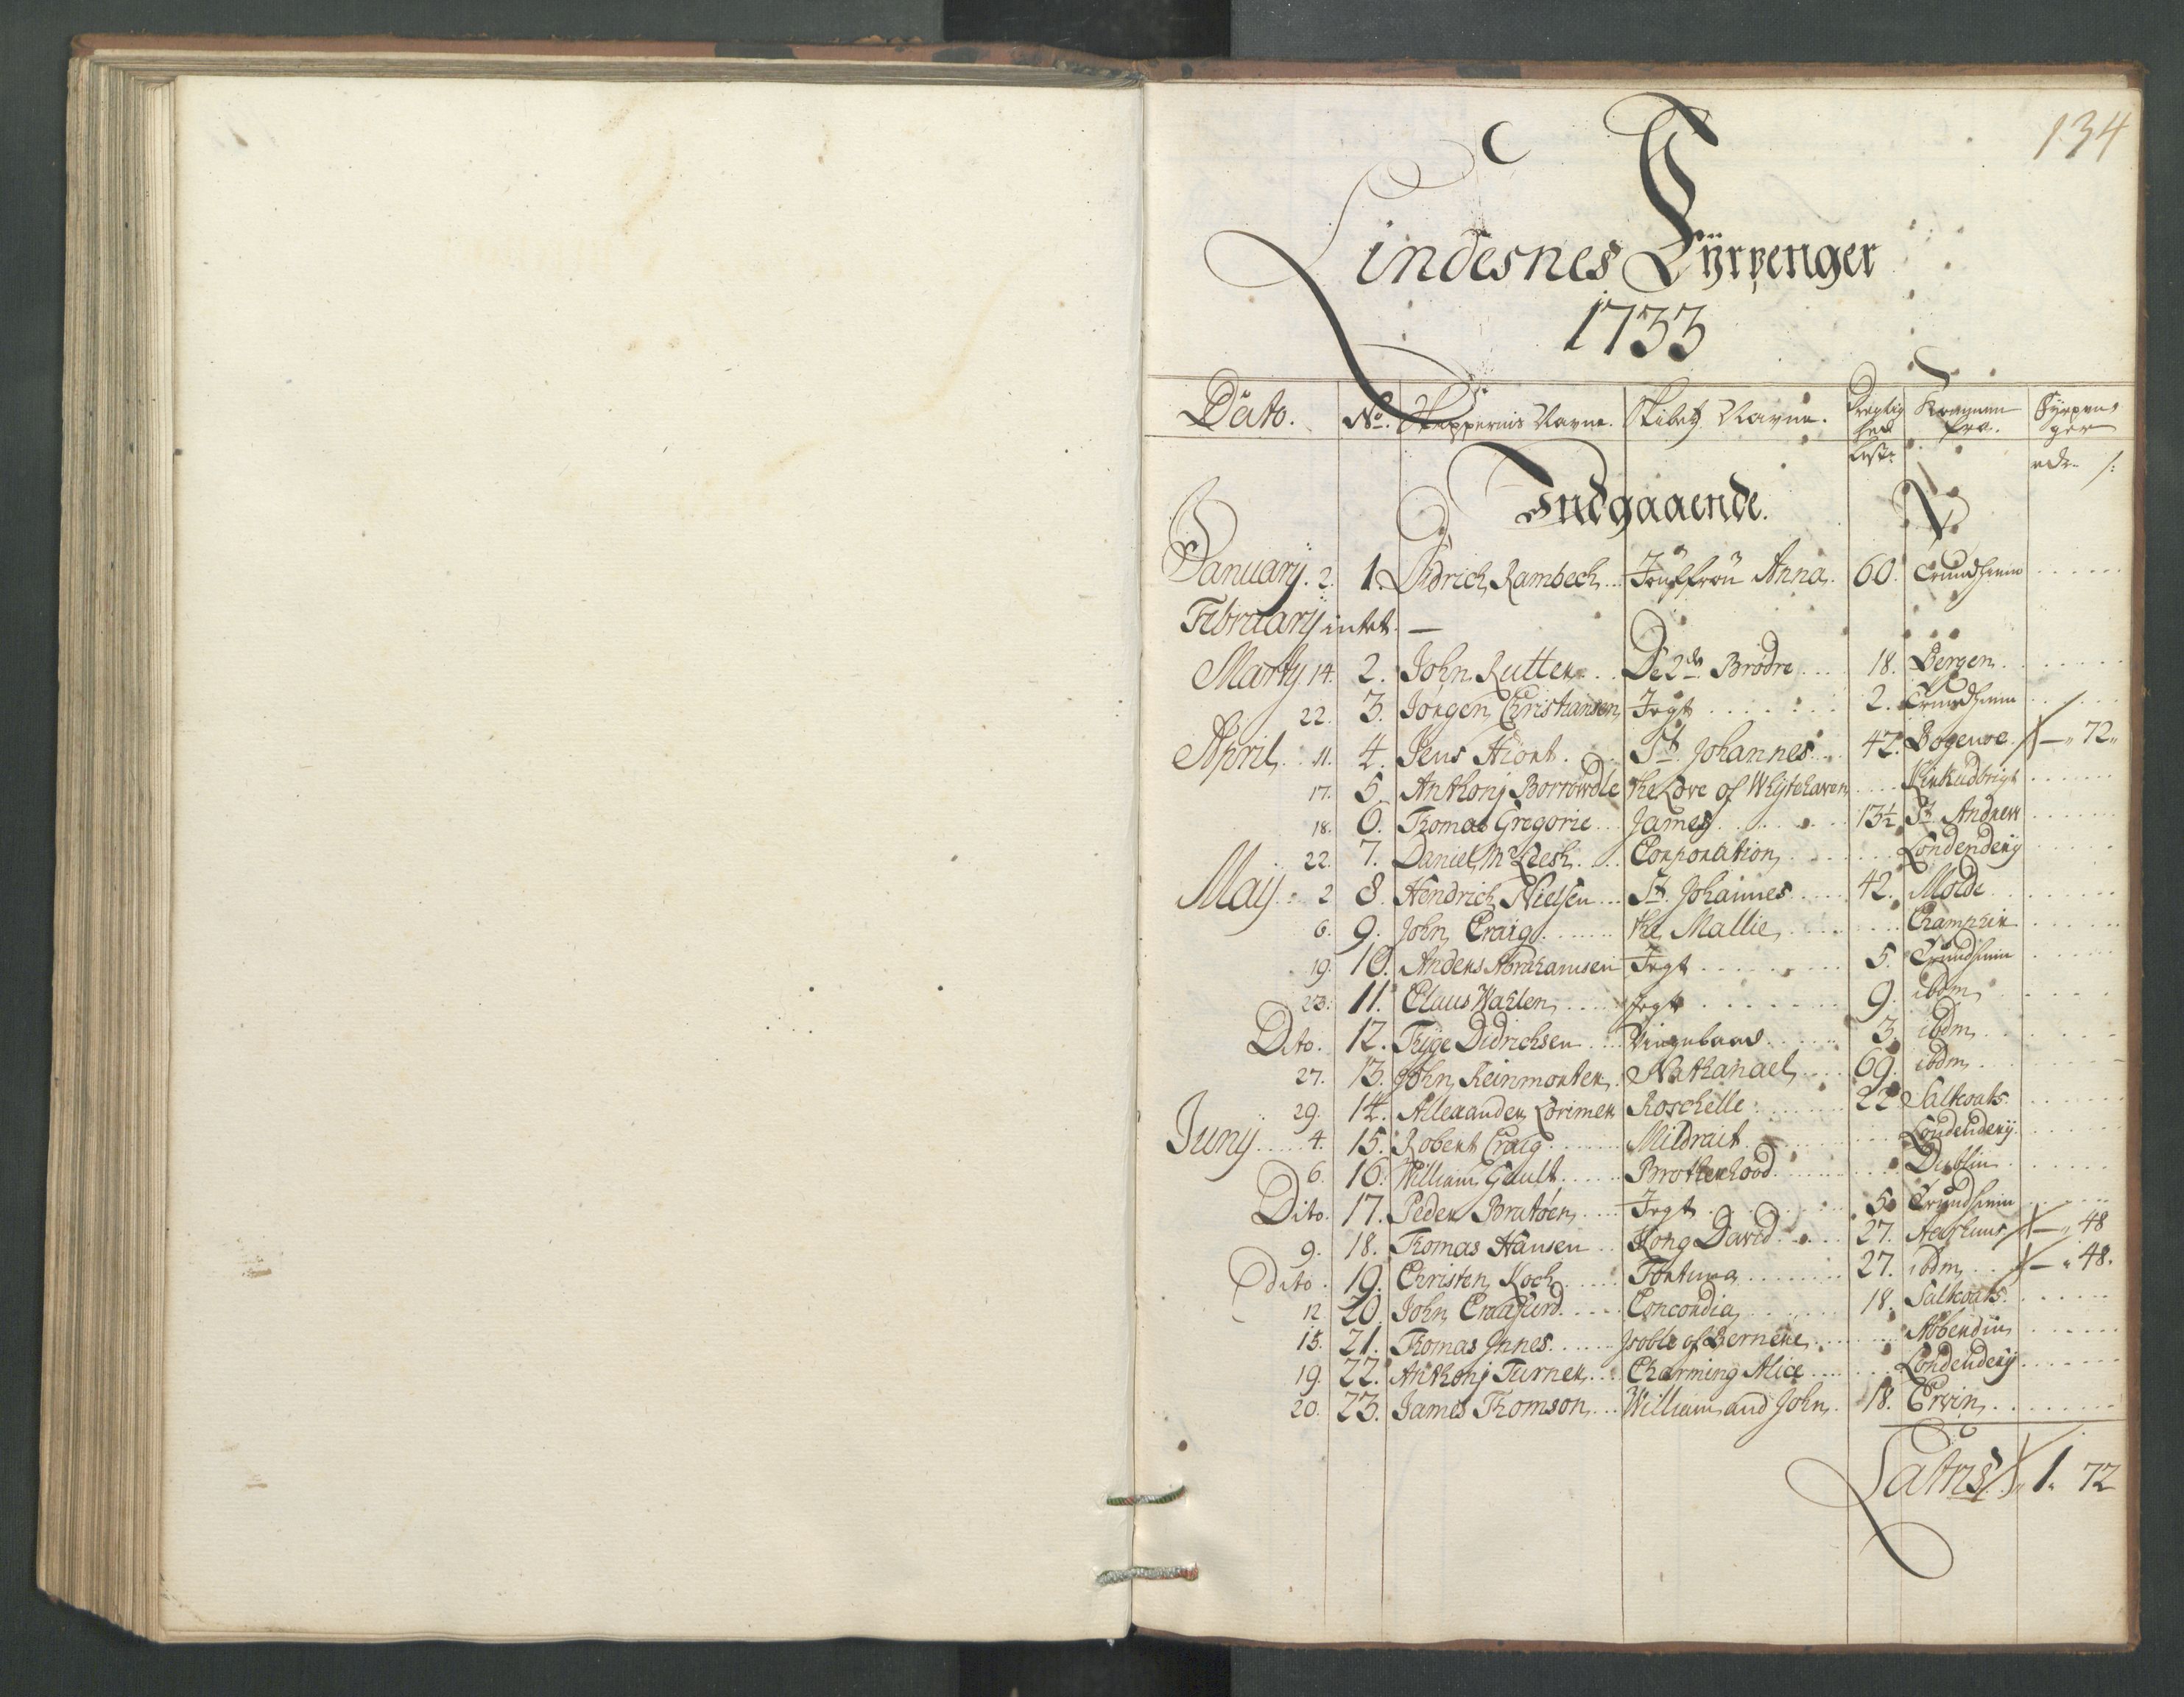 134
Lindesnes Fÿrpenger
1733
Dato. No. Skippernis Navne. Skibetz Navne. Dregtig Kommen Fÿrpen
hed fra. ger
Lest: rdr. s:
Indgaaende.
Januarij. 2. 1. Didrich Rambech Jomffrou Anna. 60. Trundhiem
Februarij intet. —
Martij 14. 2. John Rutter De 2de Brødre 18. Bergen
22. 3. Jørgen Christiansen Jegt 2. Trundhiem
April 11. 4. Jens Hiort St. Johannes 42. Bogense — 72
17. 5. Anthonj Borrowdle the Love of Whijtehaven Kirkudbrigt
18. 6. Thomas Gregorie James 13½ St. Andrew
22. 7. Daniel McLeesh Corporation Londenderij
Maij 2 8. Hendrich Nielsen St. Johannes 42. Molde
6. 9. John Craig the Mallie
19. 10. Anders Abrahamsen Jegt 5. Trundhiem
23. 11. Claus Wahlen Jegt 9. ibdm
Dito. 12. Thÿge Didrichsen 3. ibdm
27. 13. John Reinmorter Nathanael 69. ibdm
29. 14. Allexander Lorimer Roschelle 22 Saltkoats
Junij 4. 15. Robert Craig Mildrait Londenderij
6. 16. William Gault Brotherhood Dublin
Dito. 17. Peder Bratøen Jegt 5 Trundhiem
9. 18. Thomas Hansen Kong David 27. Aarhuus — 48
dito 19. Christen Koch Fortuna 27. ibdm — 48.
12 20. John Craufurd Concordia 18. Saltkoats
15. 21. Thomas Innes Isoble of Bernerie Abberdin
19. 22. Anthonj Turner Charming Alice Londenderij
20. 23. James Thomson William and John 18. Erwin
Latris 1. 72